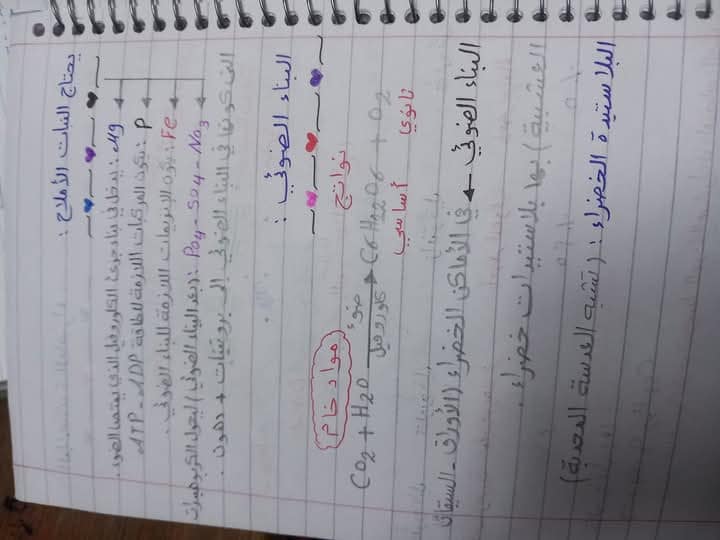 يحتاج النبات الأملاح :
Mg : يدخل في بناء جزئ الكلوروفيل الذي يمتص الضوء .
P : تكون المركبات اللازمة للطاقة ATP - ADP
Fe : تكون الإنزيمات اللازمة للبناء الضوئي .
Po4 - So4 - No3 : (بعد البناء الضوئي) لتحول الكربوهيدرات
التي كونها في البناء الضوئي إلى بروتينات + دهون .
البناء الضوئي :
مواد خام
نواتج
CO2 + H2O ضوء كلوروفيل C6H12O6 + O2
أساسي ثانوي
البناء الضوئي ← في الأماكن الخضراء (الأوراق - السيقان
العشبية) بها بلاستيدات خضراء .
البلاستيدة الخضراء : (تشبه العدسة المحدبة)